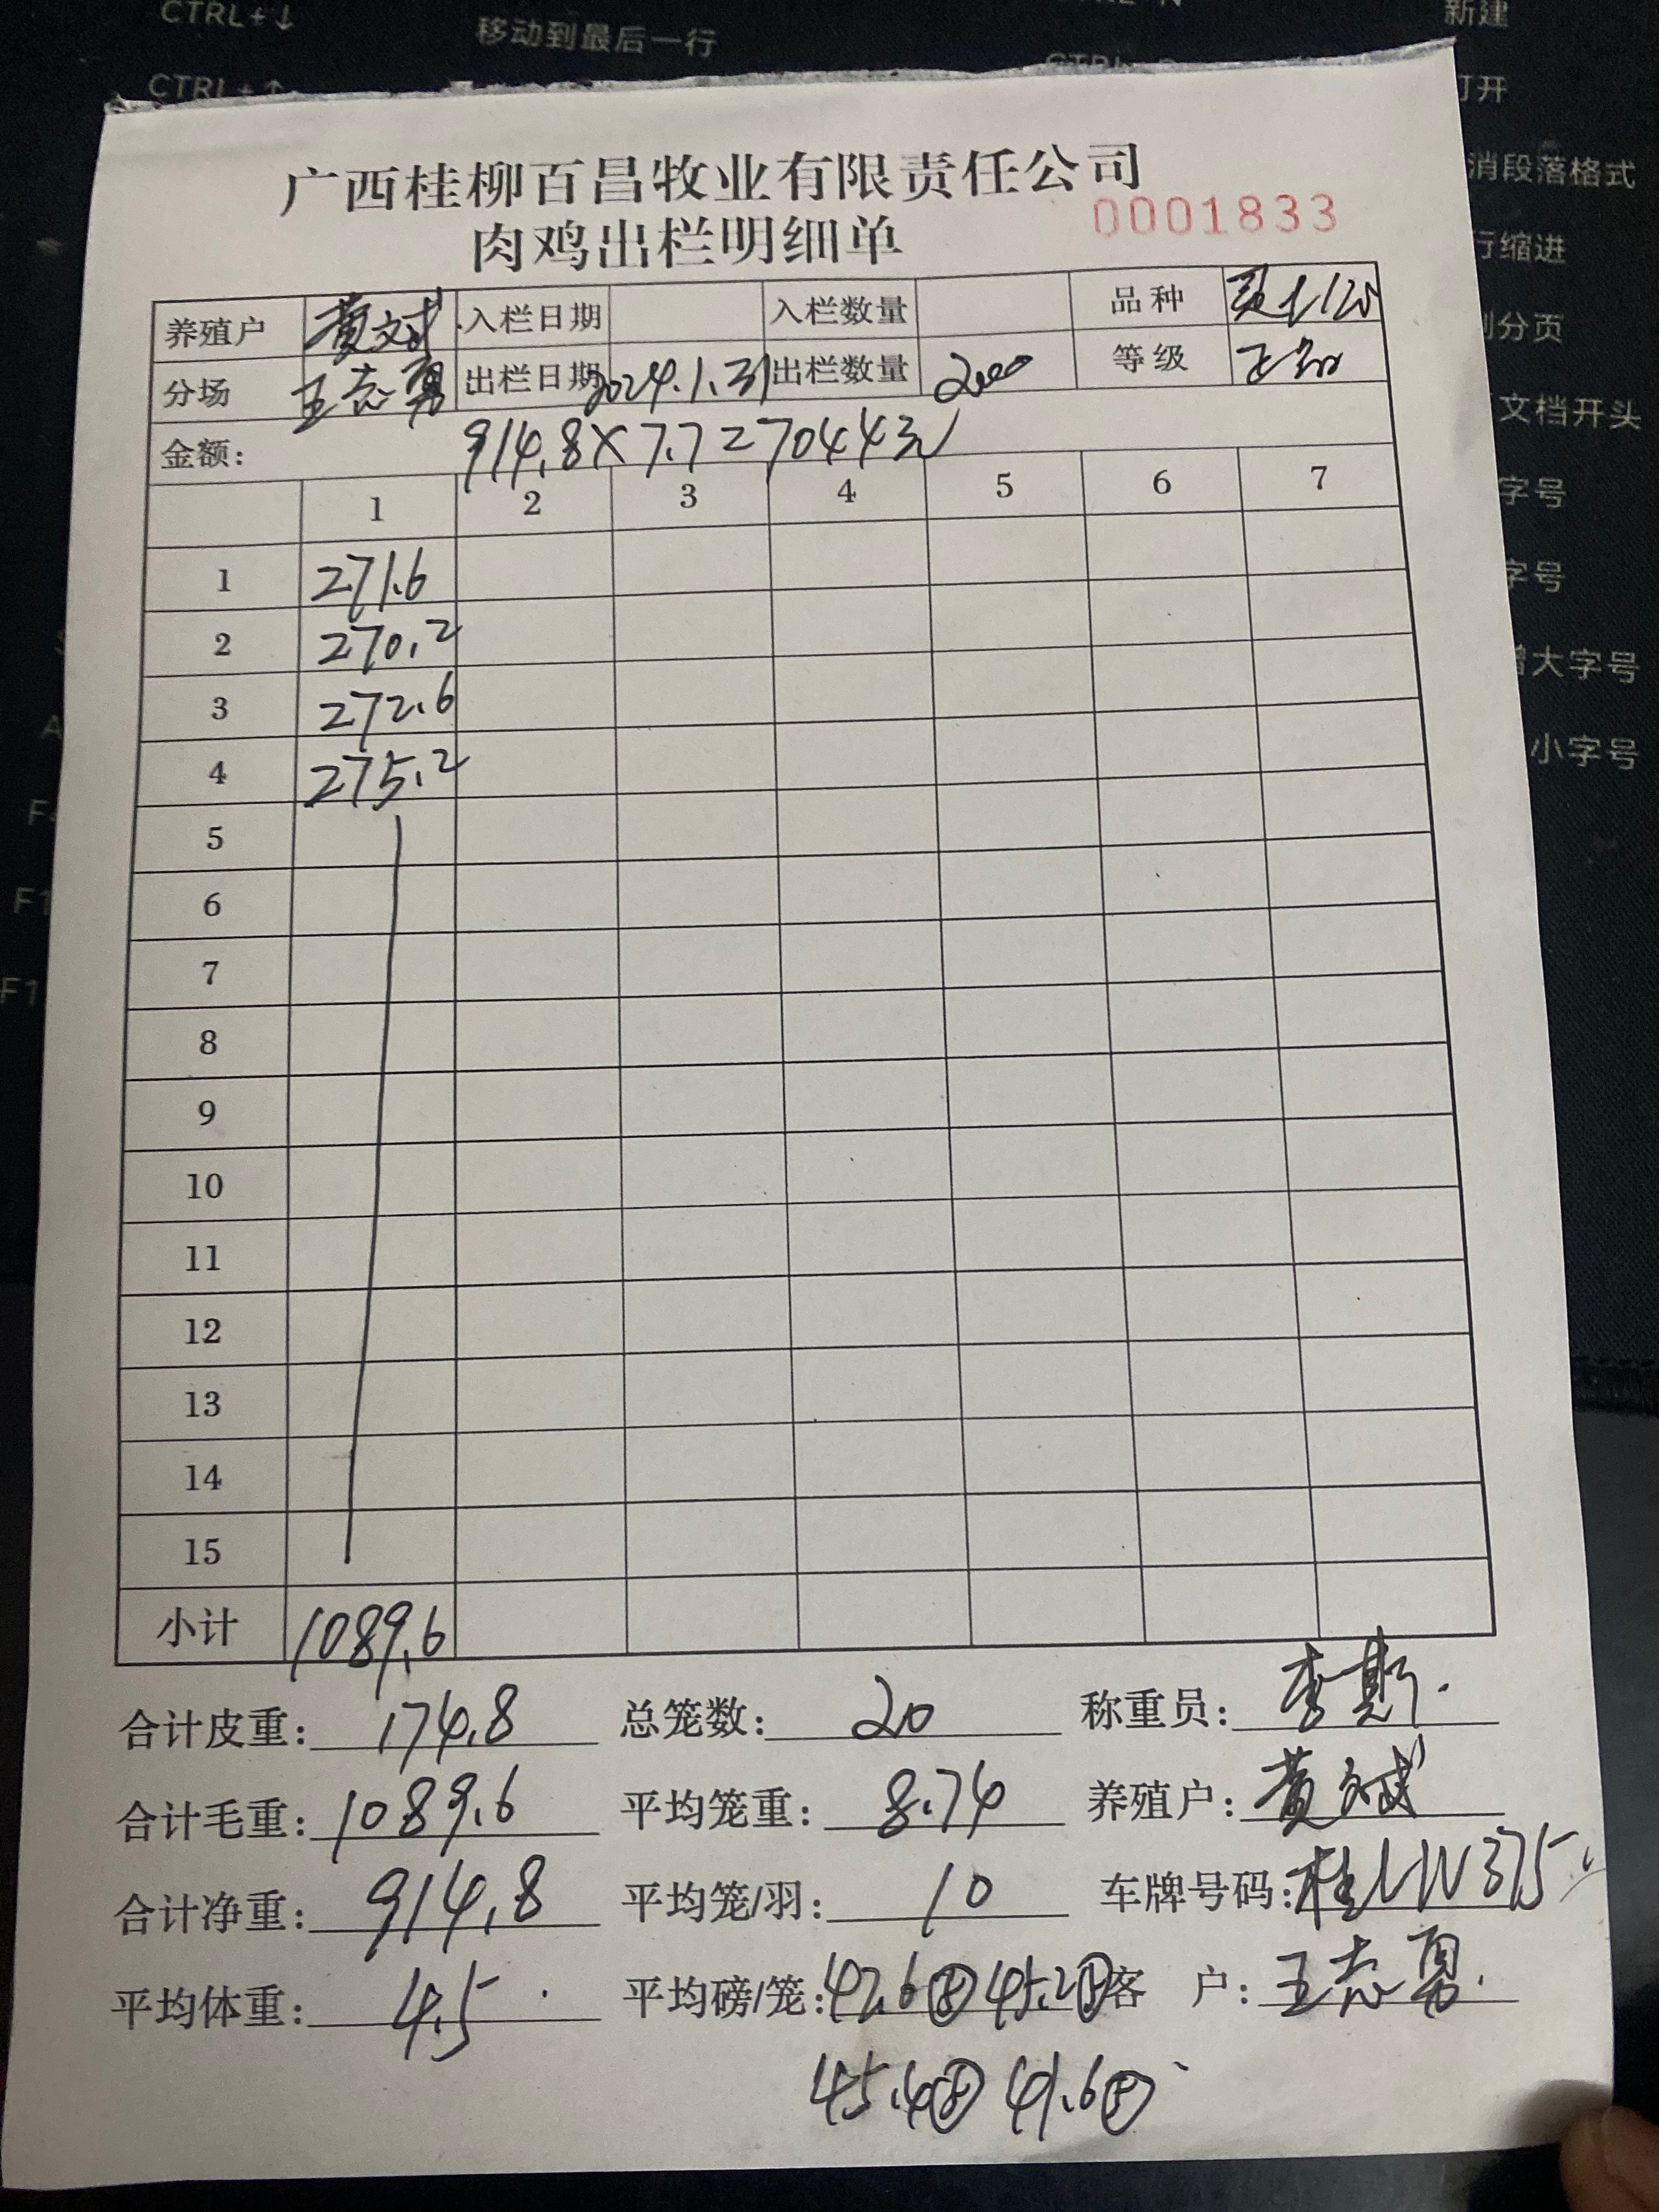 CTRL+↓ 移动到最后一行 新建
CTRL+↑ 打开
消段落格式
行缩进
分页
文档开头
字号
字号
增大字号
小字号
广西桂柳百昌牧业有限责任公司
0001833
肉鸡出栏明细单
养殖户 黄文斌 入栏日期 入栏数量 品种
分场 王志勇 出栏日期 2024.1.31 出栏数量 2000 等级 正品
金额: 914.8×7.7=7044元
1 2 3 4 5 6 7
1 271.6
2 270.2
3 272.6
4 275.2
5
6
7
8
9
10
11
12
13
14
15
小计 1089.6
合计皮重: 174.8 总笼数: 20 称重员: 李斯.
合计毛重: 1089.6 平均笼重: 8.74 养殖户: 黄文斌
合计净重: 914.8 平均笼/羽: 10 车牌号码: 桂LW375
平均体重: 4.5 平均磅/笼: 42.6⑤ 45.2⑤ 客 户: 王志勇.
45.4⑤ 41.6⑤